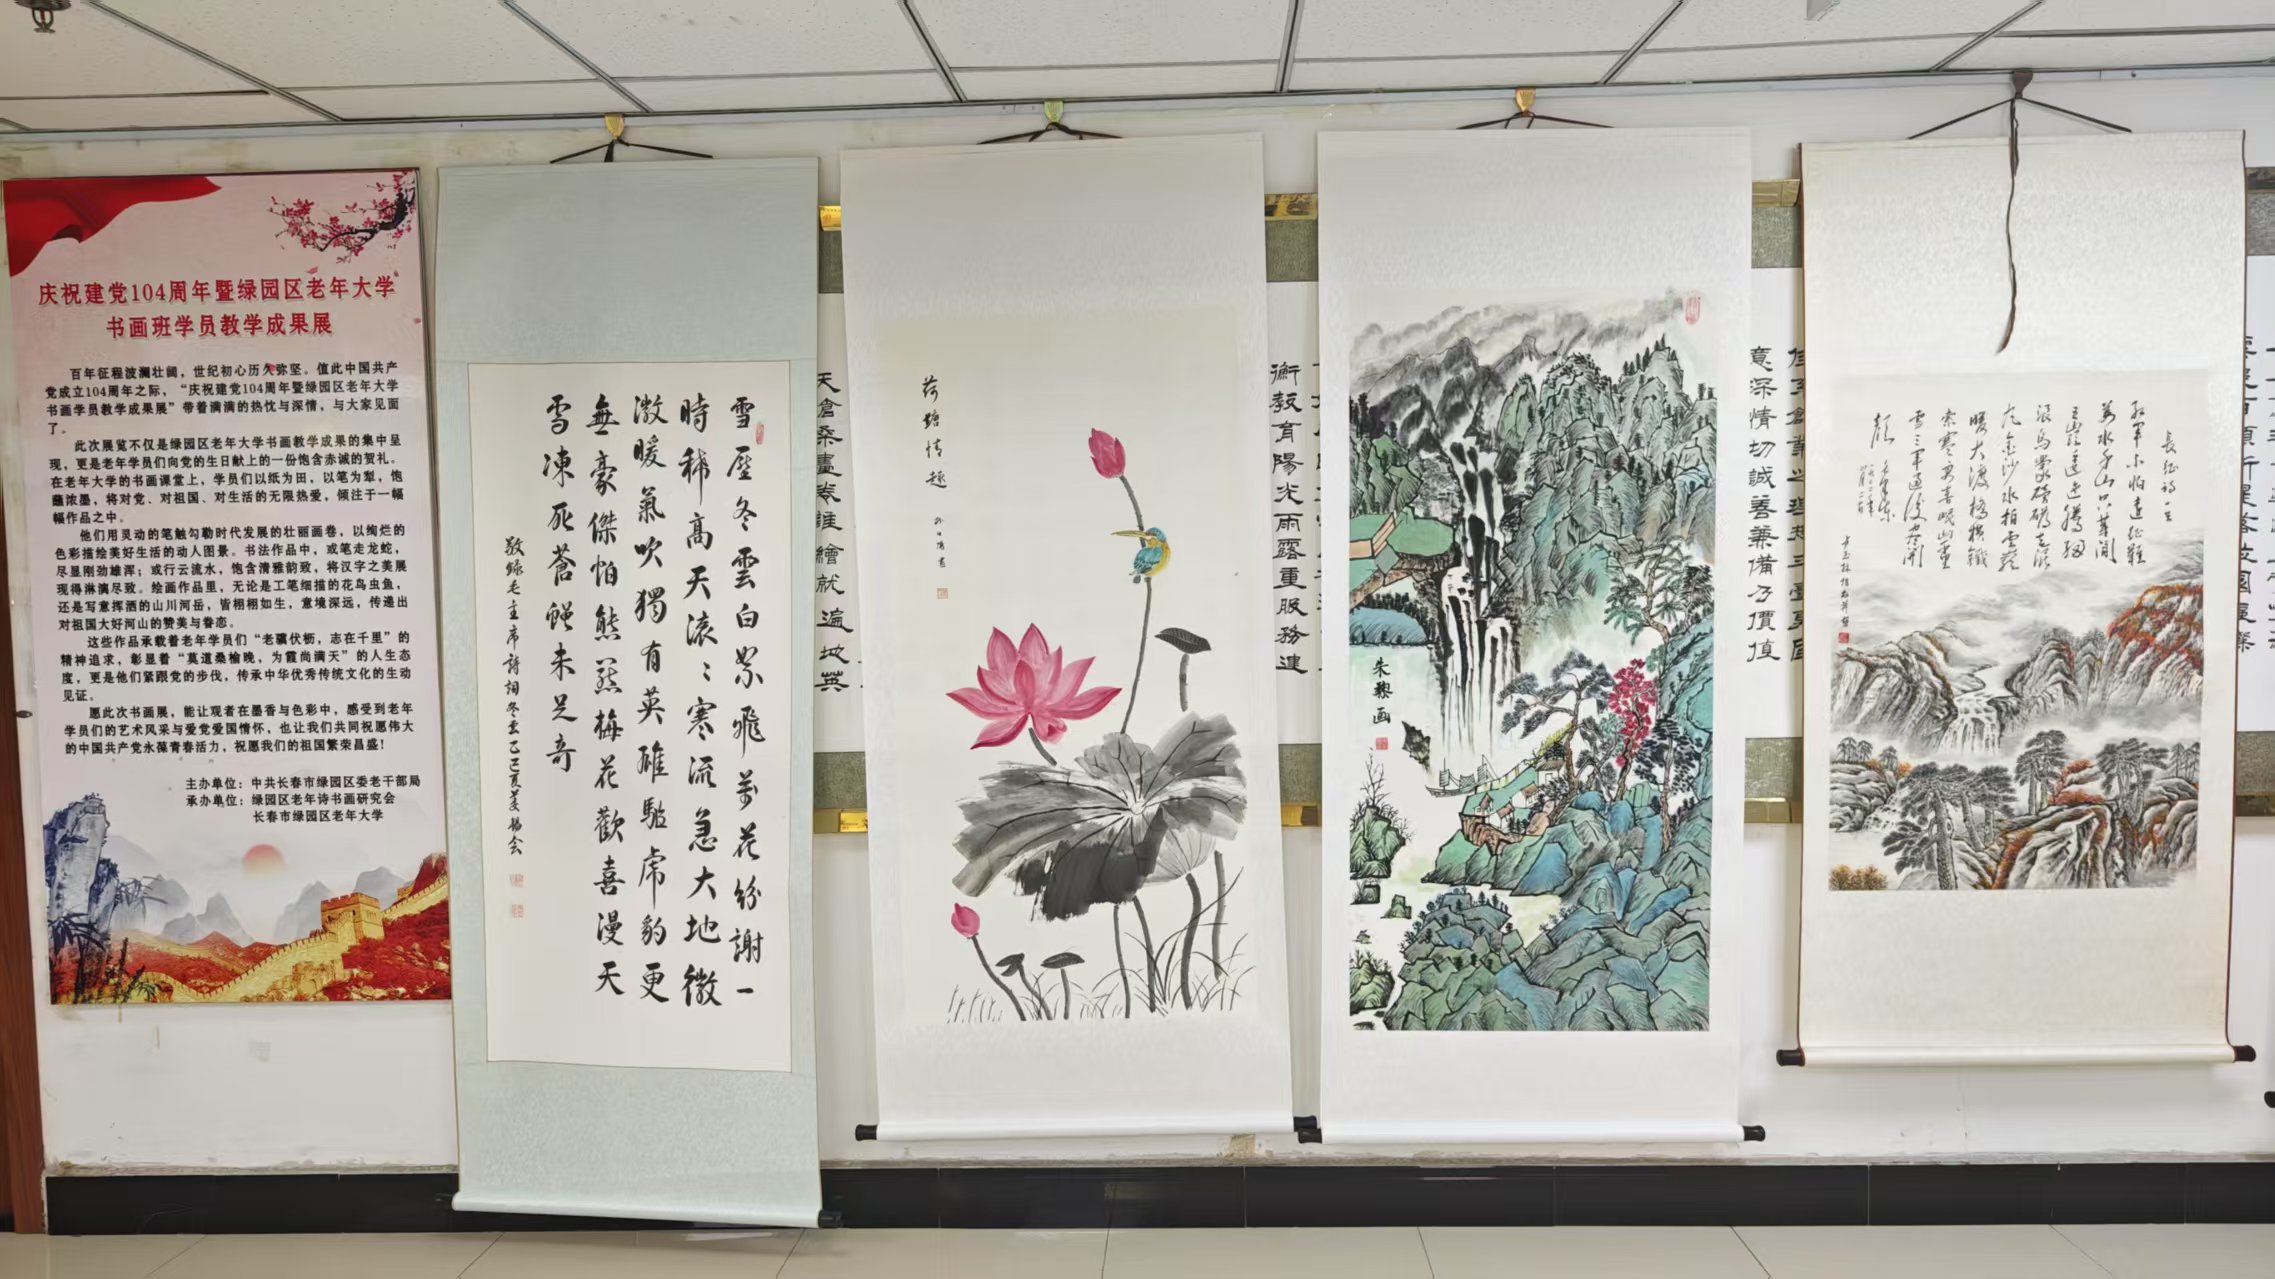 庆祝建党104周年暨绿园区老年大学
书画班学员教学成果展
百年征程波澜壮阔，世纪初心历久弥坚。值此中国共产
党成立104周年之际，“庆祝建党104周年暨绿园区老年大学
书画学员教学成果展”带着满满的热忱与深情，与大家见面
了。
此次展览不仅是绿园区老年大学书画教学成果的集中呈
现，更是老年学员们向党的生日献上的一份饱含赤诚的贺礼。
在老年大学的书画课堂上，学员们以纸为田，以笔为犁，饱
蘸浓墨，将对党、对祖国、对生活的无限热爱，倾注于一幅
幅作品之中。
他们用灵动的笔触勾勒时代发展的壮丽画卷，以绚烂的
色彩描绘美好生活的动人图景。书法作品中，或笔走龙蛇，
尽显刚劲雄浑；或行云流水，饱含清雅韵致，将汉字之美展
现得淋漓尽致。绘画作品里，无论是工笔细描的花鸟虫鱼，
还是写意挥洒的山川河岳，皆栩栩如生，意境深远，传递出
对祖国大好河山的赞美与眷恋。
这些作品承载着老年学员们“老骥伏枥，志在千里”的
精神追求，彰显着“莫道桑榆晚，为霞尚满天”的人生态
度，更是他们紧跟党的步伐，传承中华优秀传统文化的生动
见证。
愿此次书画展，能让观者在墨香与色彩中，感受到老年
学员们的艺术风采与爱党爱国情怀，也让我们共同祝愿伟大
的中国共产党永葆青春活力，祝愿我们的祖国繁荣昌盛！
主办单位：中共长春市绿园区委老干部局
承办单位：绿园区老年诗书画研究会
长春市绿园区老年大学
雪壓冬雲白絮飛萬花紛謝一
時稀高天滾滾寒流急大地微
微暖氣吹獨有英雄驅虎豹更
無豪傑怕熊羆梅花歡喜漫天
雪凍死蒼蠅未足奇
敬錄毛主席詩詞冬雲乙巳夏
天倉桑畫卷誰繪就遍地英
荷塘情趣
衡教育陽光雨露重服務建
朱黎画
意深情切誠善兼備乃價值
長征詩一首
紅軍不怕遠征難
萬水千山只等閒
五嶺逶迤騰細
浪烏蒙磅礴走泥
丸金沙水拍雲崖
暖大渡橋橫鐵
索寒更喜岷山千里
雪三軍過後盡開
顏